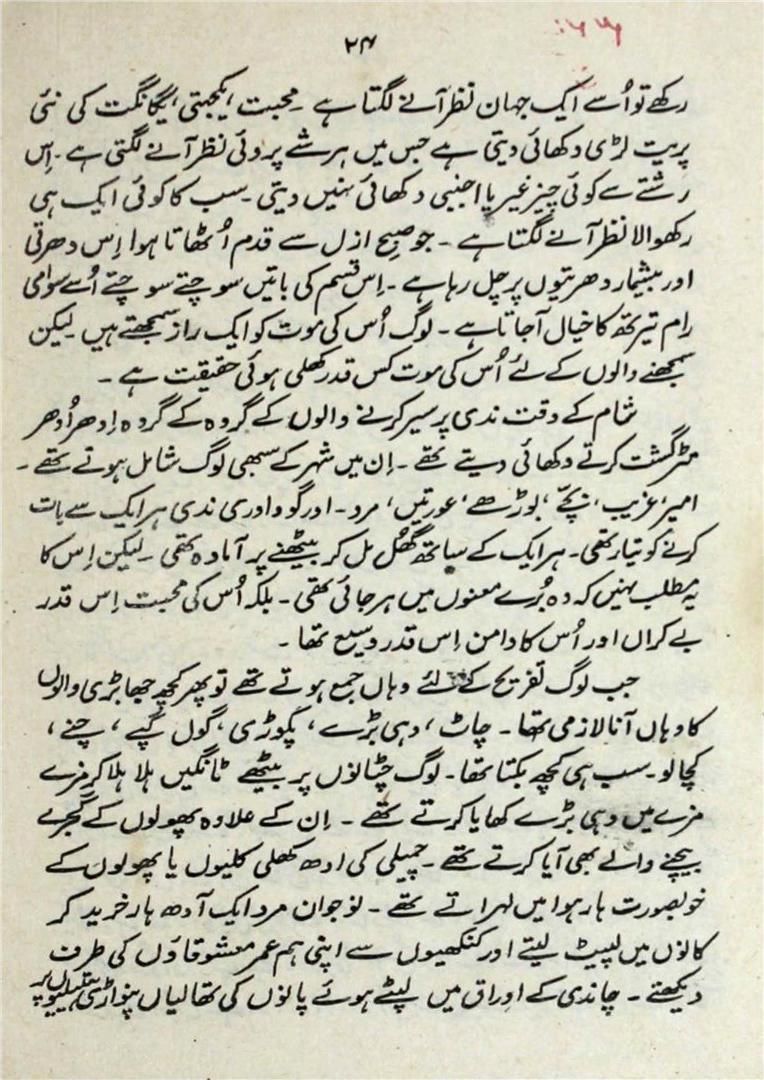 ۲۴
رکھے تو اُسے ایک جہان نظر آنے لگتا ہے ۔ محبت، یکجہتی، یگانگت کی نئی
پریت لڑی دکھائی دیتی ہے جس میں ہر شے پروئی نظر آنے لگتی ہے ۔ اِس
رشتے سے کوئی چیز غیر یا اجنبی دکھائی نہیں دیتی ۔ سب کا کوئی ایک ہی
رکھوالا نظر آنے لگتا ہے ۔ جو صبحِ ازل سے قدم اُٹھاتا ہوا اِس دھرتی
اور بیشمار دھرتیوں پر چل رہا ہے ۔ اِس قسم کی باتیں سوچتے سوچتے اُسے سوامی
رام تیرتھ کا خیال آ جاتا ہے ۔ لوگ اُس کی موت کو ایک راز سمجھتے ہیں لیکن
سمجھنے والوں کے لئے اُس کی موت کس قدر کھلی ہوئی حقیقت ہے ۔
شام کے وقت ندی پر سیر کرنے والوں کے گروہ کے گروہ اِدھر اُدھر
مٹر گشت کرتے دکھائی دیتے تھے ۔ اِن میں شہر کے سبھی لوگ شامل ہوتے تھے ۔
امیر، غریب، بچّے، بوڑھے، عورتیں، مرد ۔ اور گوداوری ندی ہر ایک سے بات
کرنے کو تیار تھی ۔ ہر ایک کے ساتھ گھُل مل کر بیٹھنے پر آمادہ تھی ۔ لیکن اِس کا
یہ مطلب نہیں کہ وہ بُرے معنوں میں ہرجائی تھی ۔ بلکہ اُس کی محبت اِس قدر
بے کراں اور اُس کا دامن اِس قدر وسیع تھا ۔
جب لوگ تفریح کے لئے وہاں جمع ہوتے تھے تو پھر کچھ چھابڑی والوں
کا وہاں آنا لازمی تھا ۔ چاٹ، دہی بڑے، پکوڑی، گول گپے، چنے،
کچالو ۔ سب ہی کچھ بکتا تھا ۔ لوگ چٹانوں پر بیٹھے ٹانگیں ہلا ہلا کر مزے
مزے میں دہی بڑے کھایا کرتے تھے ۔ اِن کے علاوہ پھولوں کے گجرے
بیچنے والے بھی آیا کرتے تھے ۔ چمپلی کی ادھ کھلی کلیوں یا پھولوں کے
خوبصورت ہار ہوا میں لہراتے تھے ۔ نوجوان مرد ایک آدھ ہار خرید کر
کانوں میں لپیٹ لیتے اور کنکھیوں سے اپنی ہم عمر معشوقاؤں کی طرف
دیکھتے ۔ چاندی کے اوراق میں لپٹے ہوئے پانوں کی تھالیاں پنواڑی ہتھیلیوں پر